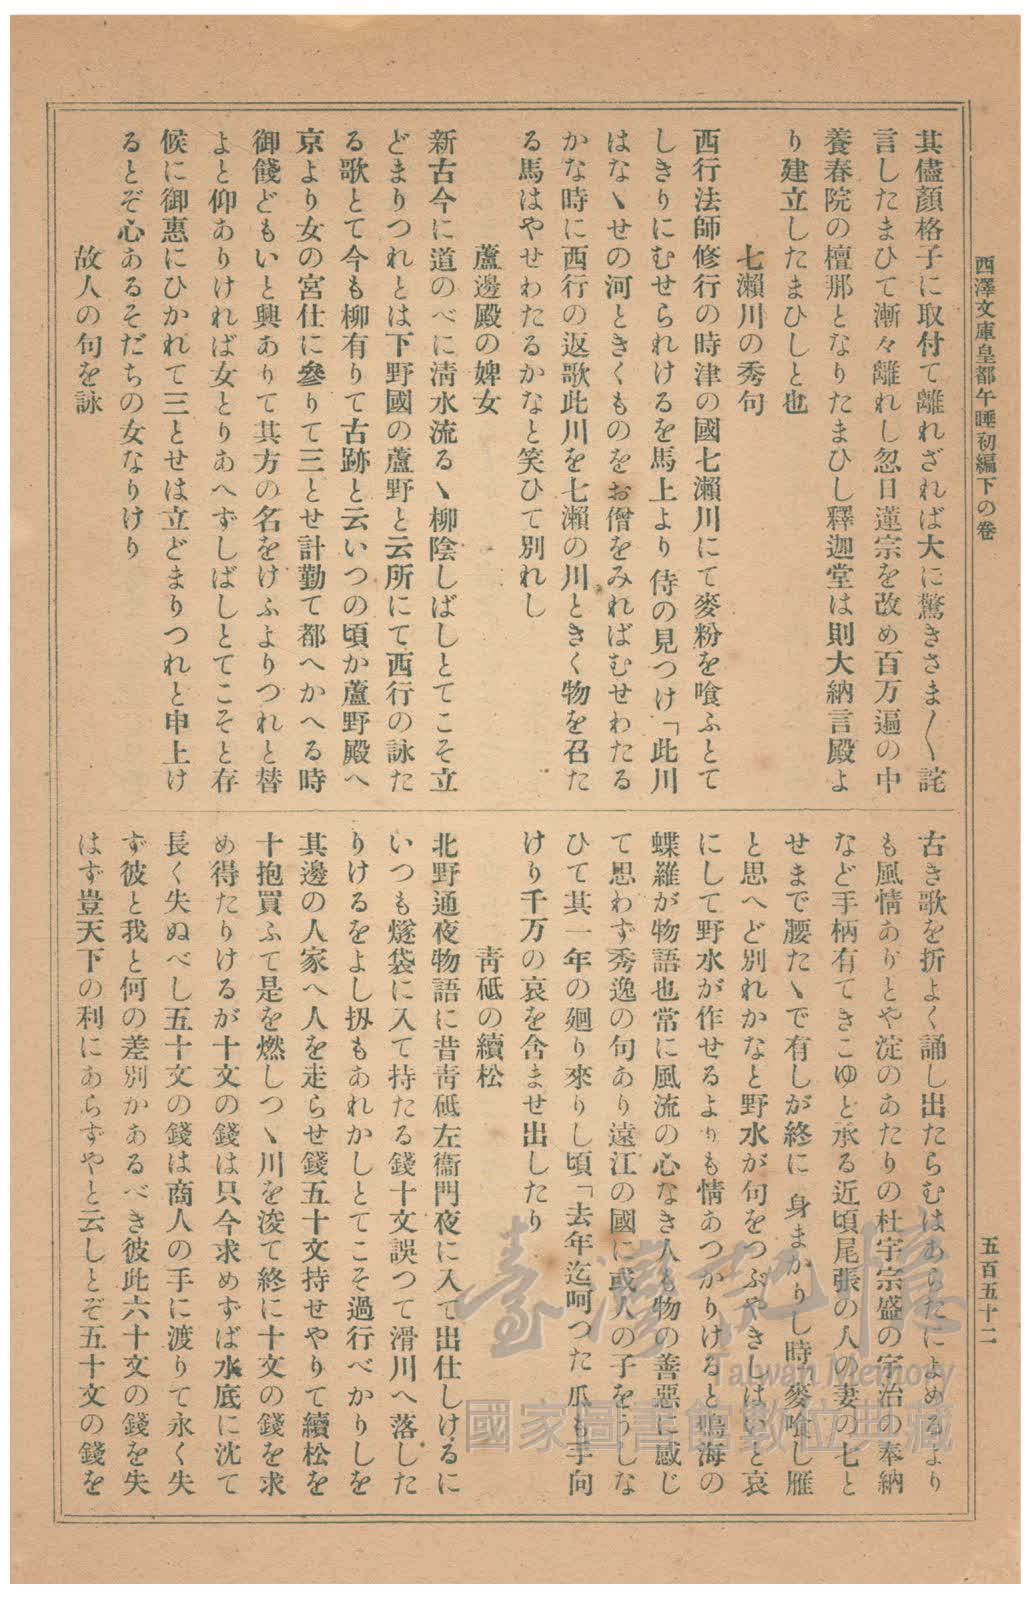 西澤文庫皇都午睡初編下の卷
五百五十二
其儘顏格子に取付て離れざれば大に驚きさま〲詫
言したまひて漸々離れし忽日蓮宗を改め百万遍の中
養春院の檀那となりたまひし釋迦堂は則大納言殿よ
り建立したまひしと也
七瀨川の秀句
西行法師修行の時津の國七瀨川にて麥粉を喰ふとて
しきりにむせられけるを馬上より侍の見つけ「此川
はなゝせの河ときくものをお僧をみればむせわたる
かな時に西行の返歌此川を七瀨の川ときく物を召た
る馬はやせわたるかなと笑ひて別れし
蘆邊殿の婢女
新古今に道のべに淸水流るゝ柳陰しばしとてこそ立
どまりつれとは下野國の蘆野と云所にて西行の詠た
る歌とて今も柳有りて古跡と云いつの頃か蘆野殿へ
京より女の宮仕に參りて三とせ計勤て都へかへる時
御餞どもいと興ありて其方の名をけふよりつれと替
よと仰ありければ女とりあへずしばしとてこそと存
候に御惠にひかれて三とせは立どまりつれと申上け
るとぞ心あるそだちの女なりけり
故人の句を詠
古き歌を折よく誦し出たらむはあらたによめるより
も風情ありとや淀のあたりの杜宇宗盛の宇治の奉納
など手柄有てきこゆと承る近頃尾張の人の妻の七と
せまで腰たゝで有しが終に身まかりし時麥喰し雁
と思へど別れかなと野水が句をつぶやきしはいと哀
にして野水が作せるよりも情あつかりけると鳴海の
蝶羅が物語也常に風流の心なき人も物の善惡に感じ
て思わず秀逸の句あり遠江の國に或人の子をうしな
ひて其一年の廻り來りし頃「去年迄呵つた瓜も手向
けり千万の哀を含ませ出したり
靑砥の續松
北野通夜物語に昔靑砥左衞門夜に入て出仕しけるに
いつも燧袋に入て持たる錢十文誤つて滑川へ落した
りけるをよし扨もあれかしとてこそ過行べかりしを
其邊の人家へ人を走らせ錢五十文持せやりて續松を
十抱買ふて是を燃しつゝ川を浚て終に十文の錢を求
め得たりけるが十文の錢は只今求めずば水底に沈て
長く失ぬべし五十文の錢は商人の手に渡りて永く失
ず彼と我と何の差別かあるべき彼此六十文の錢を失
はず豈天下の利にあらずやと云しとぞ五十文の錢を
臺灣記憶
Taiwan Memory
國家圖書館數位典藏